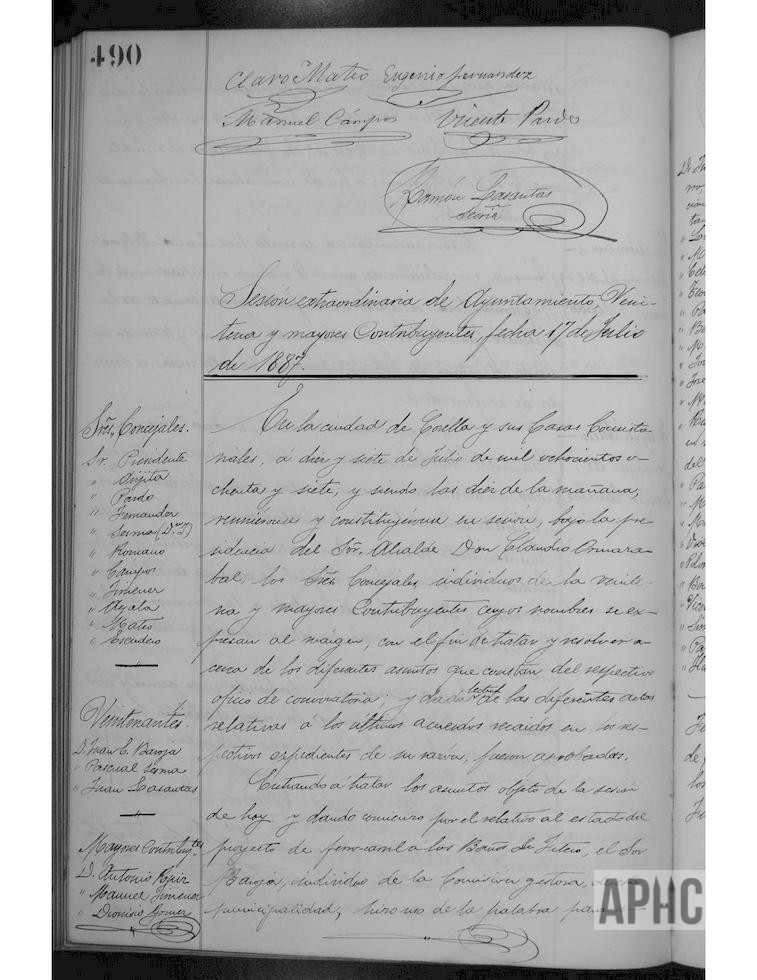 490
Claro Mateo Eugenio Fernandez
Manuel Cámpos Vicente Pardo
Ramón Lasantas
Secrio
Sesión extraordinaria de Ayuntamiento, Vein-
tena y mayores Contribuyentes, fecha 17 de Julio
de 1887.
Sres. Concejales.
Sr. Presidente
" Arijita
" Pardo
" Fernandez
" Serma (Dn. J)
" Romano
" Campos
" Jimenez
" Ayala
" Mateo
" Escudero
Veintenantes.
D. Juan C. Baroja
" Pascual Serma
" Juan Lasantas
Mayores Contribuytes
D. Antonio Ruiz
" Manuel Jimenez
" Dionisio Gomez
En la ciudad de Corella y sus Casas Consisto-
riales, á diez y siete de Julio de mil ochocientos o-
chenta y siete, y siendo las diez de la mañana,
reuniéronse y constituyéronse en sesión, bajo la pre-
sidencia del Sor. Alcalde Don Claudio
bal, los Sres Concejales individuos de la veinte-
na y mayores Contribuyentes cuyos nombres se ex-
presan al márgen, con el fin de tratar y resolver a-
cerca de los diferentes asuntos que constan del respectivo
oficio de convocatoria; y dada lectura de las diferentes actas
relativas á los últimos acuerdos recaidos en los res-
pectivos expedientes de su razón, fueron aprobadas.
Entrando á tratar los asuntos objeto de la sesión
de hoy y dando comienzo por el relativo al estado del
proyecto de ferro-carril a los Baños de Fitero, el Sor
Baroja, individuo de la Comision gestora, de esta
municipalidad, hizo uso de la palabra para
APHC